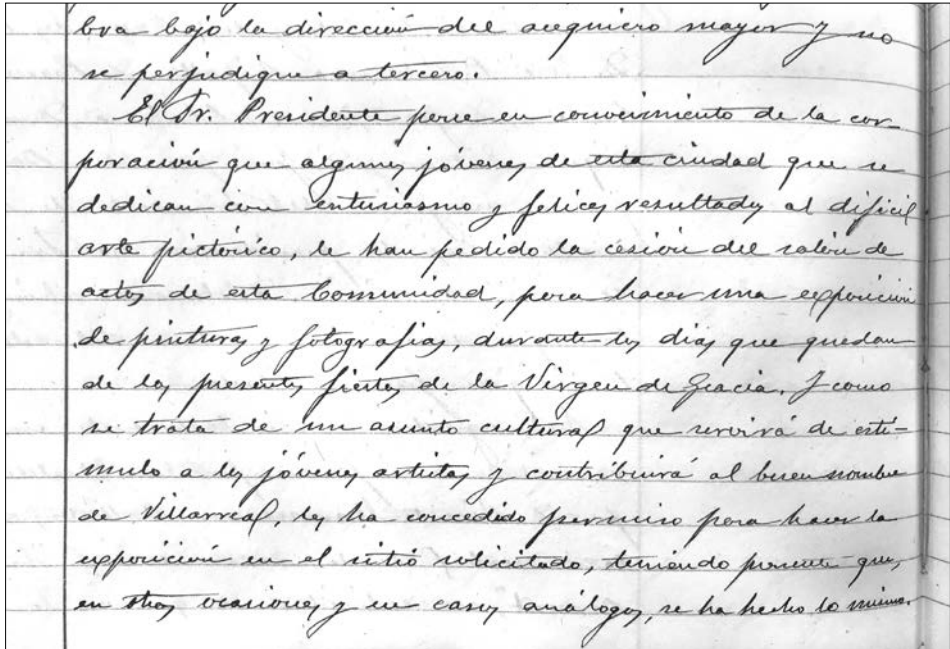 bra bajo la dirección del acequiero mayor y no
se perjudique a tercero.
El Sr. Presidente pone en conocimiento de la cor-
poración que algunos jóvenes de esta ciudad que se
dedican con entusiasmo y felices resultados al dificil
arte pictórico, le han pedido la cesión del salón de
actos de esta Comunidad, para hacer una exposición
de pinturas y fotografias, durante los dias que quedan
de las presentes fiestas de la Virgen de Gracia. Y como
se trata de un asunto cultural que servirá de estí-
mulo a los jóvenes artistas y contribuirá al buen nombre
de Villarreal, les ha concedido permiso para hacer la
exposición en el sitio solicitado, teniendo presente que,
en otras ocasiones y en casos análogos, se ha hecho lo mismo.